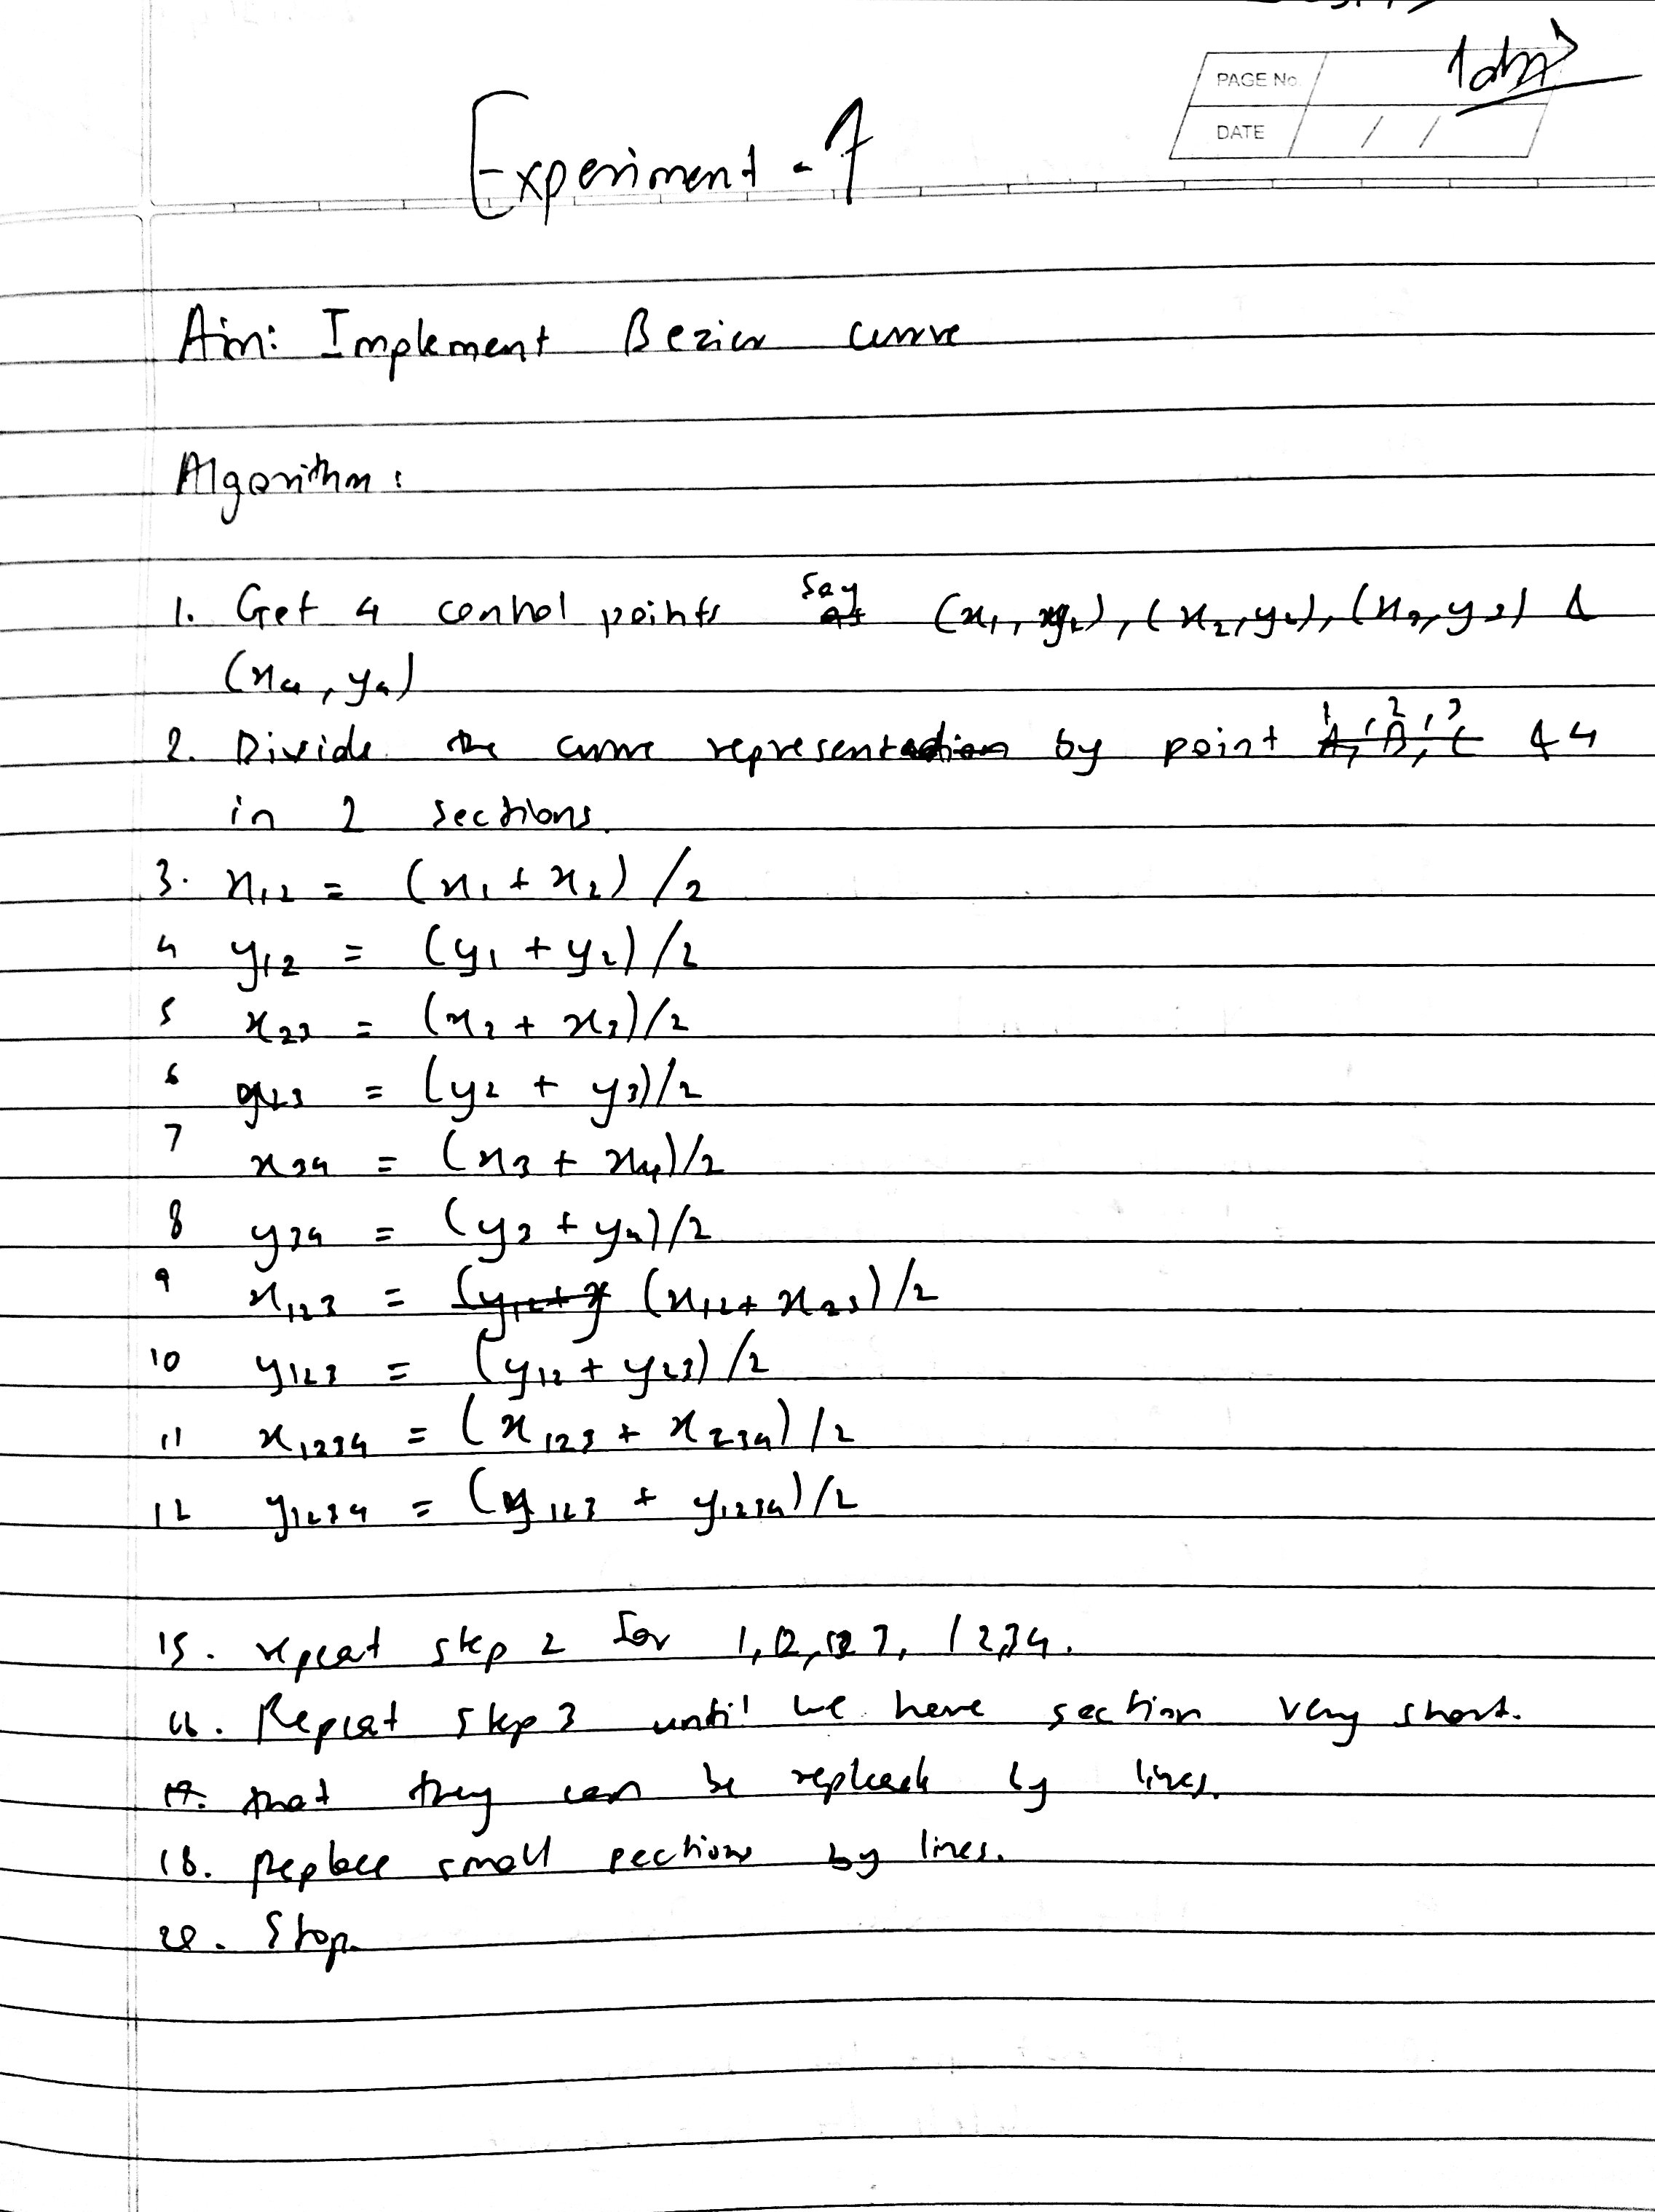 PAGE No.
DATE / /
Experiment - 7
Aim: Implement Bezier curve
Algorithm:
1. Get 4 control points say (x1, y1), (x2, y2), (x3, y3) &
(x4, y4)
2. Divide the curve represent by point 1, 2, 3 & 4
in 2 sections.
3. x12 = (x1 + x2) /2
4 y12 = (y1 + y2) /2
5 x23 = (x2 + x3)/2
6 y23 = (y2 + y3)/2
7 x34 = (x3 + x4)/2
8 y34 = (y3 + y4)/2
9 x123 = (x12 + x23) /2
10 y123 = (y12 + y23) /2
11 x1234 = (x123 + x234) /2
12 y1234 = (y123 + y1234) /2
15. repeat step 2 for 1, 12, 123, 1234.
16. Repeat step 3 until we have section very short.
17. that they can be by lines.
18. Replace small sections by lines.
20. Stop.